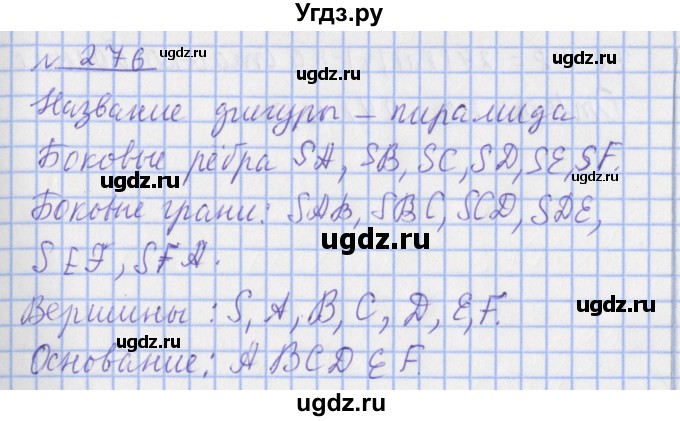 Угдз.ру
№ 276
ugdz.ru ugdz.ru
Название фигуры – пирамида
ugdz.ru
Боковые рёбра SA, SB, SC, SD, SE, SF.
ugdz.ru ugdz.ru
Боковые грани: SAB, SBC, SCD, SDE,
ugdz.ru
SEF, SFA.
ugdz.ru ugdz.ru
Вершины: S, A, B, C, D, E, F.
ugdz.ru
Основание: ABCDEF.
ugdz.ru ugdz.ru
ugdz.ru